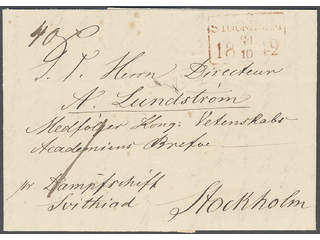 40
STOCKHOLM
31
18 42
10
S. T. Herrn Directeur
N. Lundström
Medföljer Kong: Vetenskabs
Academiens Brefve
pr Dampfschift
Svithiad
Stockholm